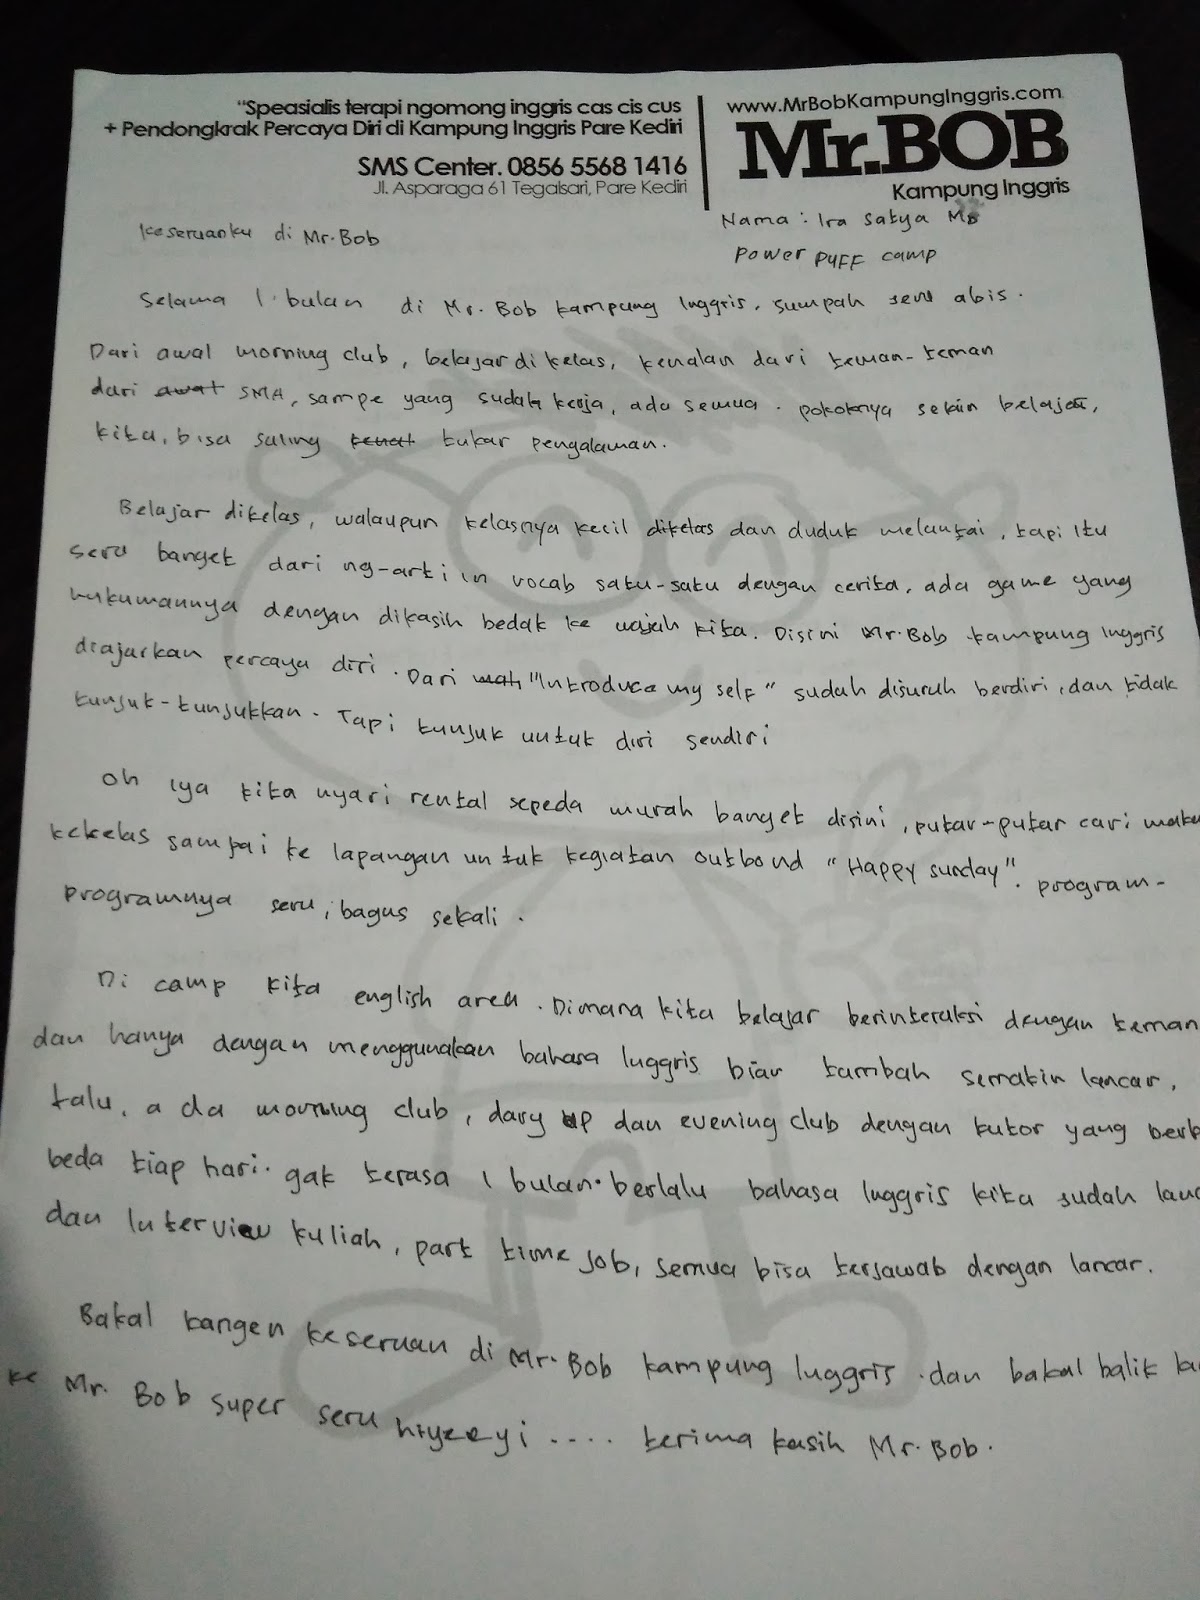 "Speasialis terapi ngomong inggris cas cis cus
+ Pendongkrak Percaya Diri di Kampung Inggris Pare Kediri
SMS Center. 0856 5568 1416
Jl. Asparaga 61 Tegalsari, Pare Kediri
www.MrBobKampungInggris.com
Mr.BOB
Kampung Inggris
Nama : Ira Satya
Power Puff camp
Keseruanku di Mr. Bob
Selama 1 bulan di Mr. Bob Kampung Inggris, sumpah seru abis.
Dari awal morning club, belajar di kelas, kenalan dari teman-teman
dari awal SMA, sampe yang sudah kerja, ada semua. pokoknya selain belajar,
kita, bisa saling kenal tukar pengalaman.
Belajar dikelas, walaupun kelasnya kecil dikelas dan duduk melantai, tapi itu
seru banget dari ng-arti in vocab satu-satu dengan cerita, ada game yang
hukumannya dengan dikasih bedak ke wajah kita. Disini Mr. Bob Kampung Inggris
diajarkan percaya diri. Dari "Introduce my self" sudah disuruh berdiri, dan tidak
tunjuk-tunjukkan. Tapi tunjuk untuk diri sendiri
Oh iya kita nyari rental sepeda murah banget disini, putar-putar cari maka
kekelas sampai ke lapangan untuk kegiatan outbond "Happy sunday". program-
programnya seru, bagus sekali.
Di camp kita english area. Dimana kita belajar berinteraksi dengan teman
dan hanya dengan menggunakan bahasa Inggris biar tambah semakin lancar,
talu, ada morning club, dary up dan evening club dengan tutor yang berb
beda tiap hari. gak terasa 1 bulan berlalu bahasa Inggris kita sudah lanc
dan Interview kuliah, part time job, semua bisa terjawab dengan lancar.
Bakal kangen keseruan di Mr. Bob Kampung Inggris. dan bakal balik la
ke Mr. Bob super seru .... terima kasih Mr. Bob.